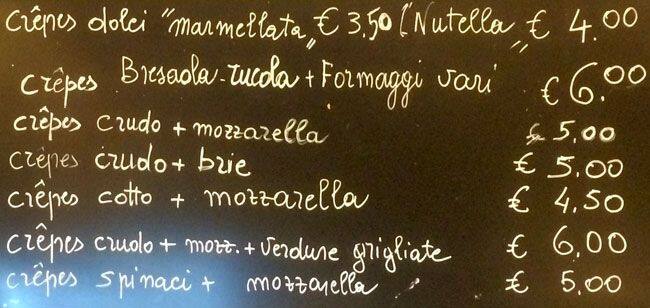 crêpes dolci "marmellata" € 3.50 ("Nutella" € 4.00
crêpes Bresaola-rucola + Formaggi vari € 6.00
crêpes crudo + mozzarella € 5.00
crêpes crudo + brie € 5.00
crêpes cotto + mozzarella € 4,50
crêpes crudo + mozz. + verdure grigliate € 6,00
crêpes spinaci + mozzarella € 5,00